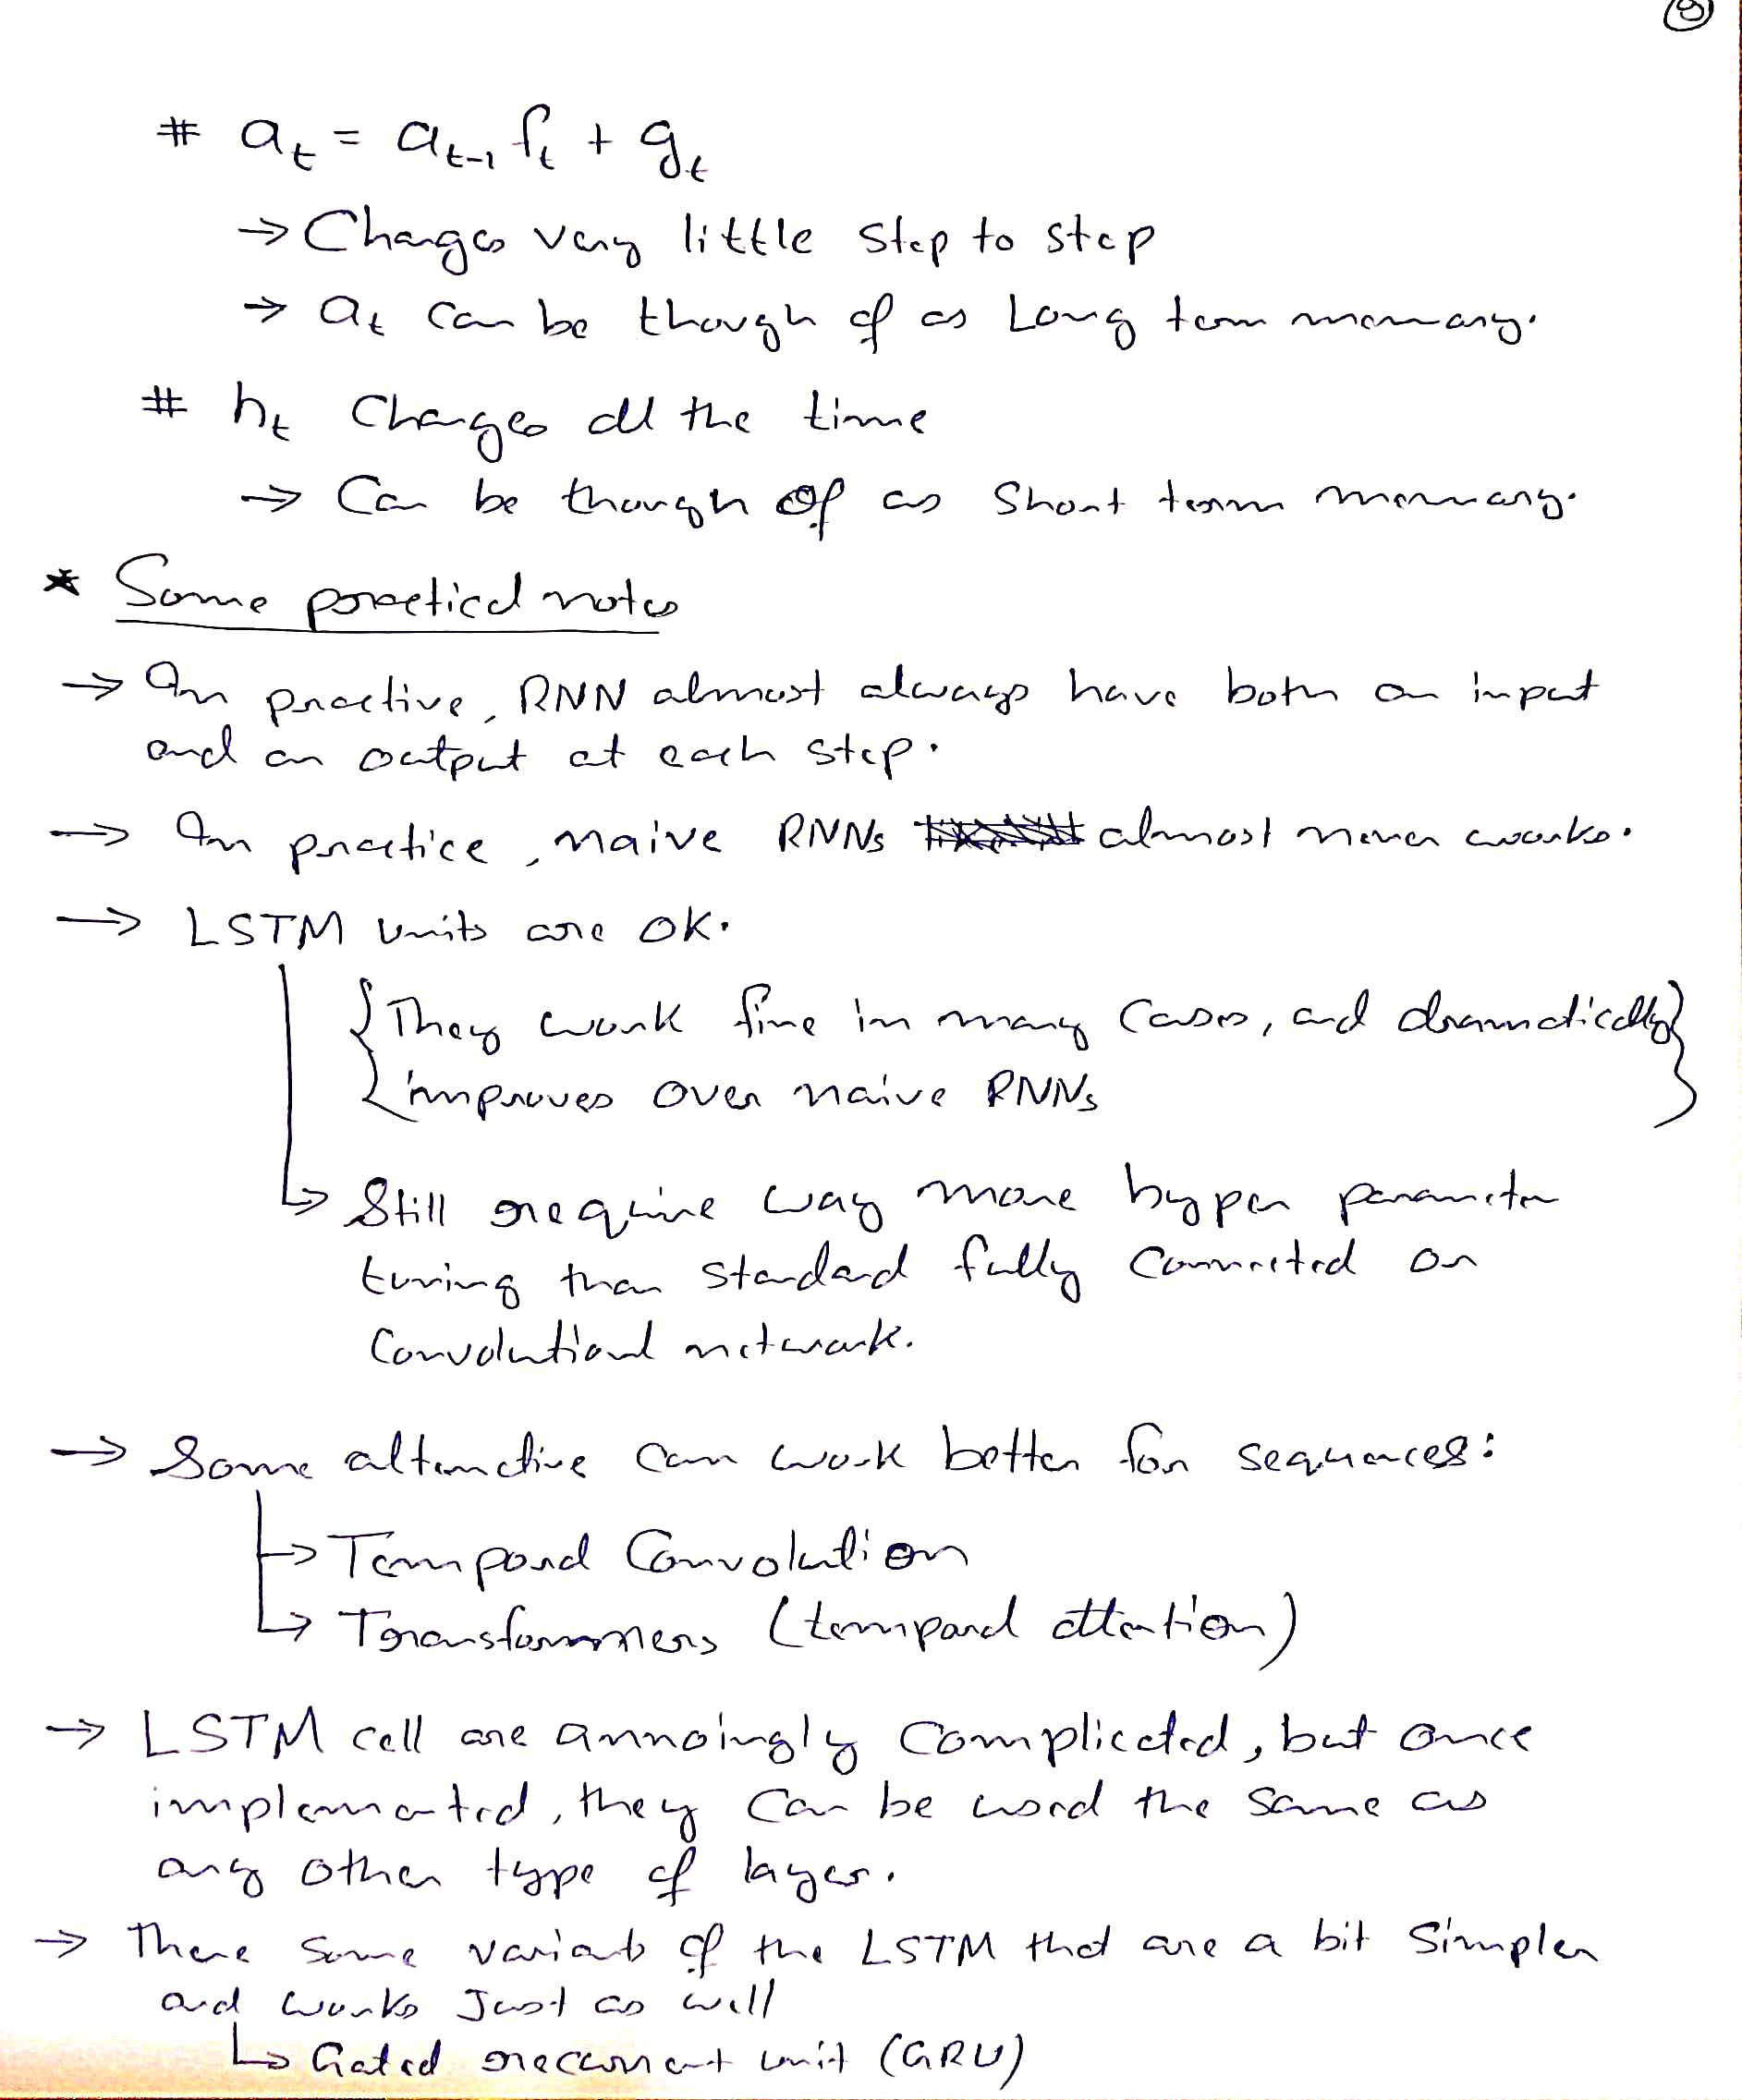 # a_t = a_{t-1} f_t + g_t
→ Changes very little step to step
→ a_t can be though of as Long term memory.
# h_t Changes all the time
→ Can be though of as Short term memory.
* Some practical notes
→ In practive, RNN almost always have both an input
and an output at each step.
→ In practice, naive RNNs almost never works.
→ LSTM Units are OK.
{They work fine in many Cases, and dramatically}
improves over naive RNNs
↳ Still require way more hyper parameter
tuning than standard fully connected or
Convolutional network.
→ Some alternative can work better for sequences:
↳ Temporal Convolution
↳ Transformers (temporal attention)
→ LSTM cell are annoingly complicated, but once
implemented, they can be used the same as
any other type of layer.
→ There some variants of the LSTM that are a bit simpler
and works Just as well
↳ Gated recurrent unit (GRU)